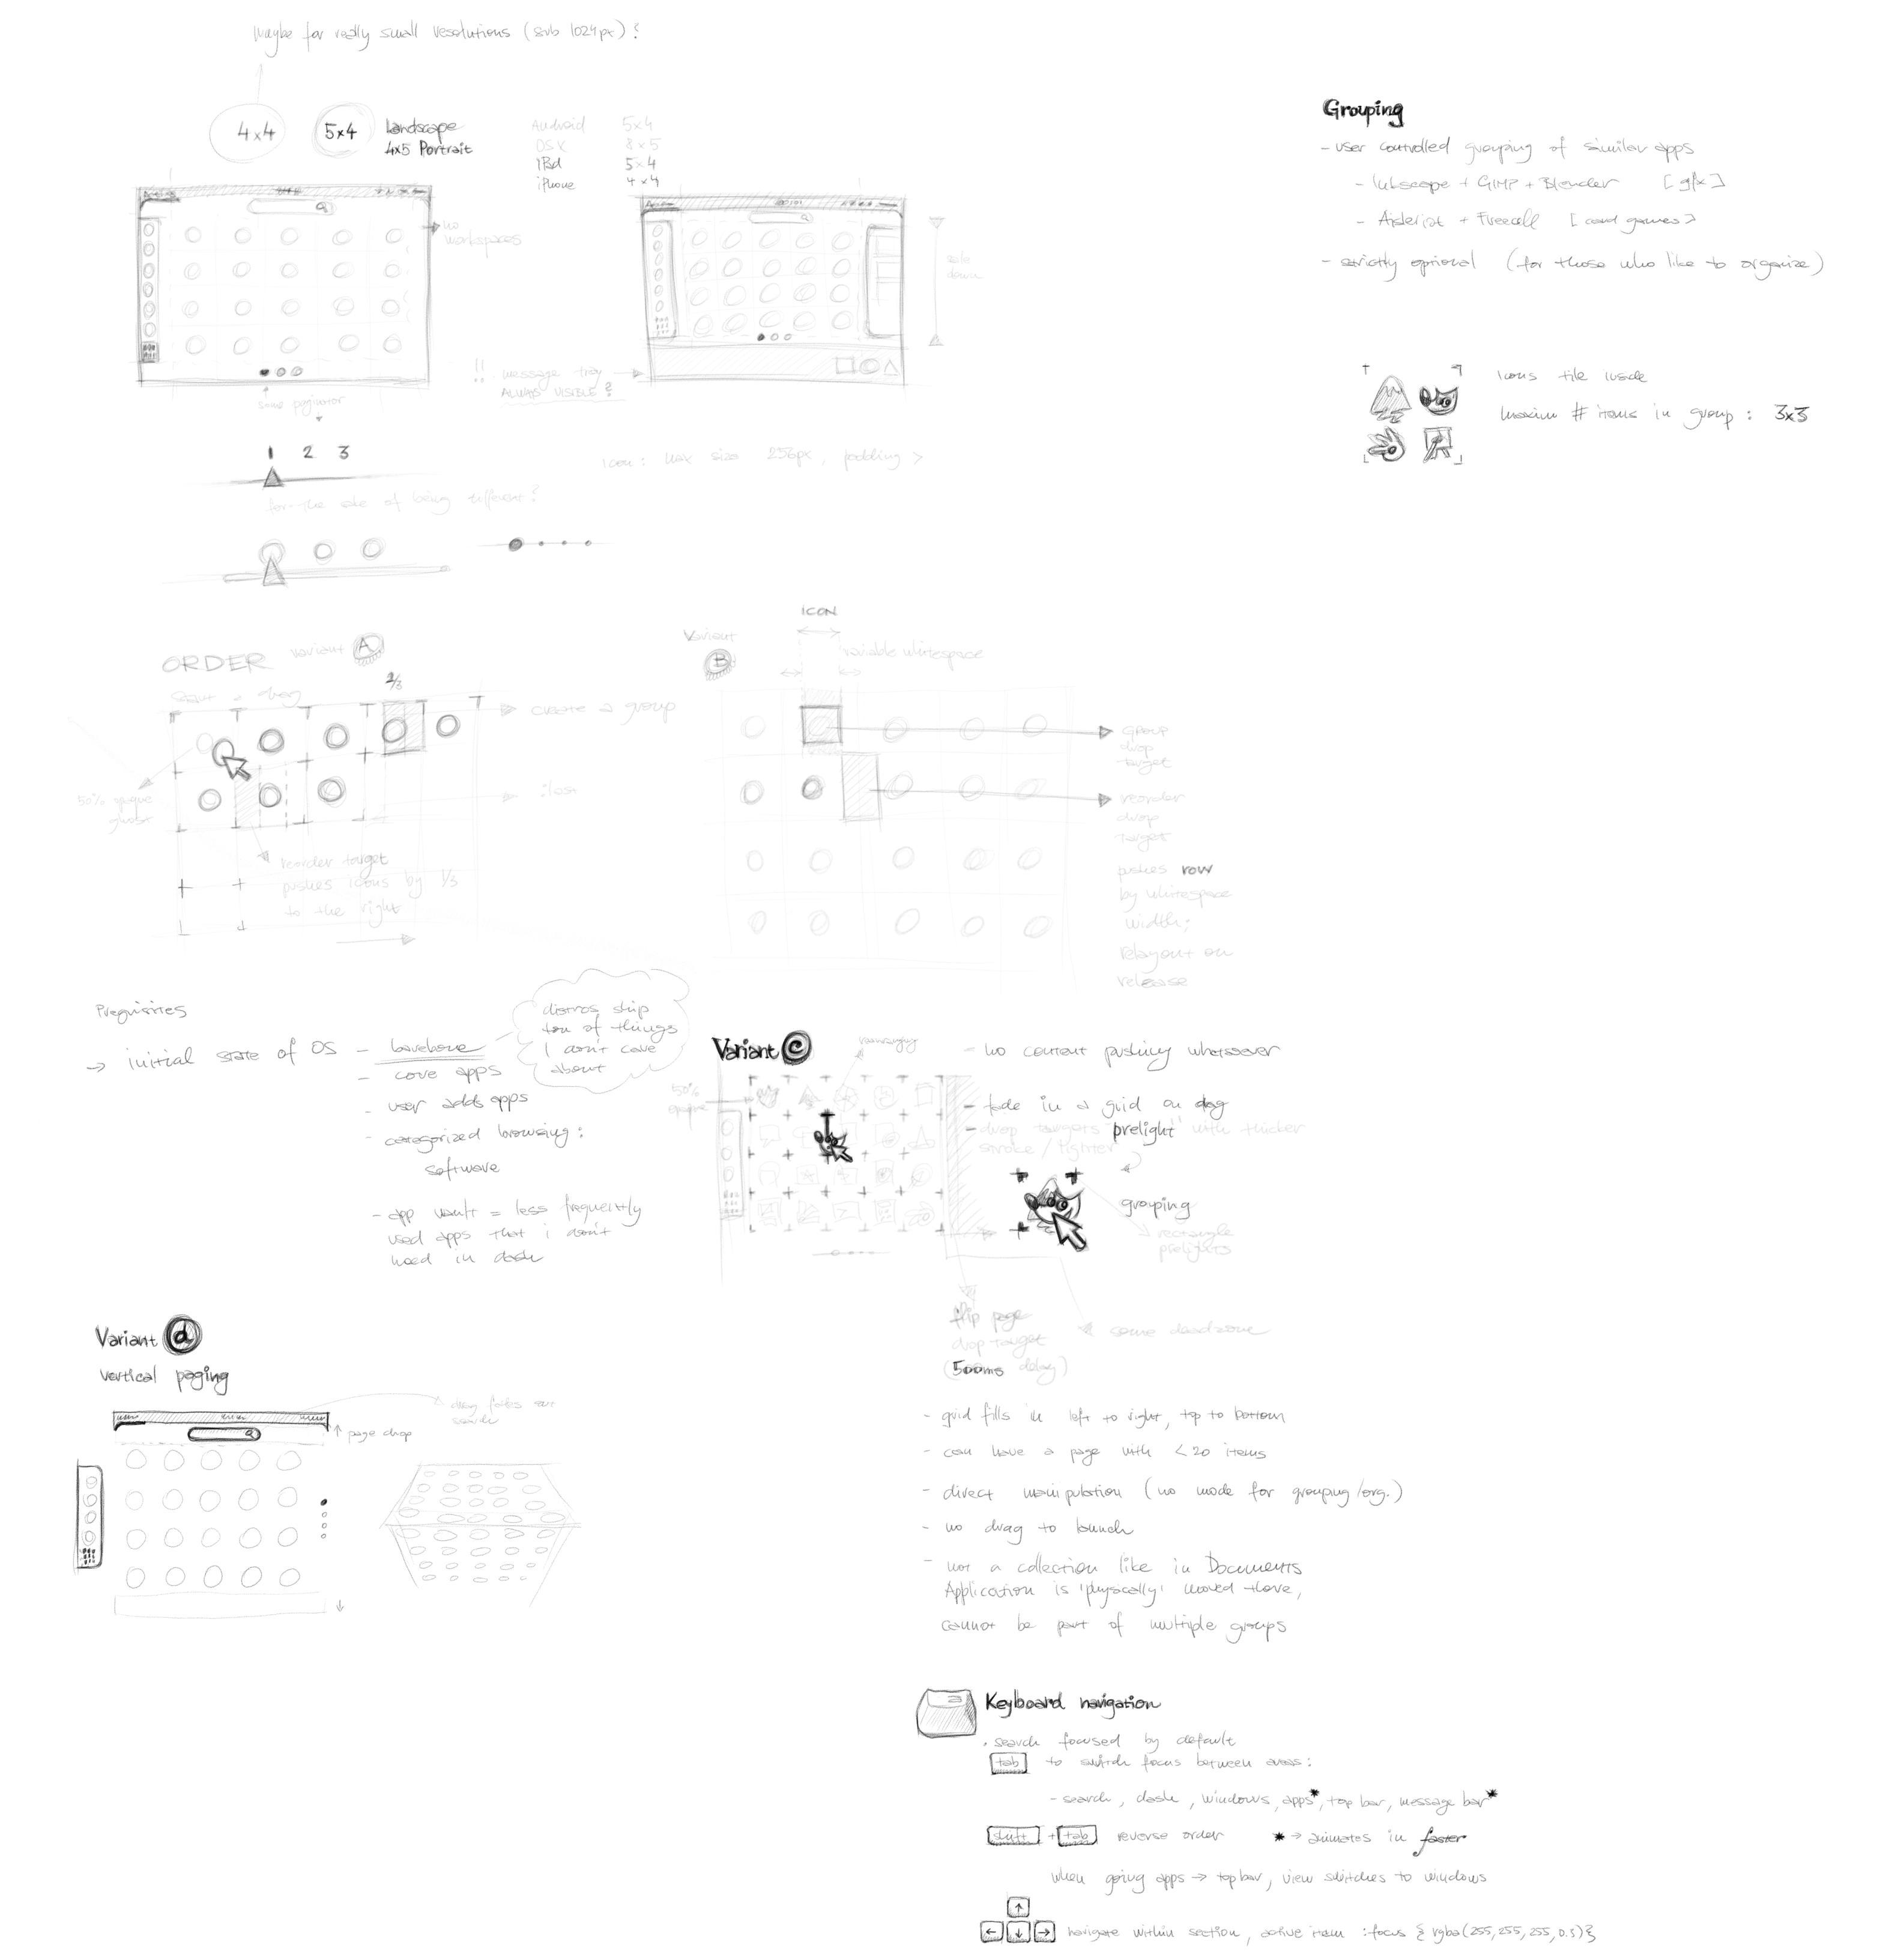 Maybe for really small resolutions (sub 1024px)?
4x4
5x4
Landscape
4x5 Portrait
Android 5x4
OSX 8x5
iPad 5x4
iPhone 4x4
no
workspaces
slide
down
!! message tray
ALWAYS VISIBLE?
some paginator
1 2 3
for the sake of being different?
icon: max size 256px, padding >
Grouping
- user controlled grouping of similar apps
- Inkscape + GIMP + Blender [gfx]
- Aisleriot + Freecell [card games]
- strictly optional (for those who like to organize)
icons tile inside
maxim # items in group: 3x3
ORDER variant A
start a drag
create a group
50% opaque
ghost
reorder target
pushes icons by 1/3
to the right
Variant
B
ICON
variable whitespace
group
drop
target
reorder
drop
target
pushes row
by whitespace
width;
relayout on
release
Prequisities
→ initial state of OS - barebone
- core apps
- user adds apps
- categorized browsing:
software
- app vault = less frequently
used apps that i don't
need in dash
distros ship
ton of things
I don't care
about
Variant C
rearranging
50%
opaque
- no content pushing whatsoever
- fade in a grid on drag
- drop targets "prelight" with thicker
stroke / lighter
grouping
rectangle
prelights
flip page
drop target
(500ms delay)
some deadzone
- grid fills in left to right, top to bottom
- can have a page with <20 items
- direct manipulation (no mode for grouping/org.)
- no drag to launch
- not a collection like in Documents
Application is 'physically' moved there,
cannot be part of multiple groups
Variant d
vertical paging
drag fades out
search
↑ page drop
Keyboard navigation
. search focused by default
tab to switch focus between areas:
- search, dash, windows, apps*, top bar, message bar*
shift + tab reverse order * → animates in faster
when going apps → topbar, view switches to windows
↑
← ↓ → navigate within section, active item :focus { rgba(255,255,255,0.3)}